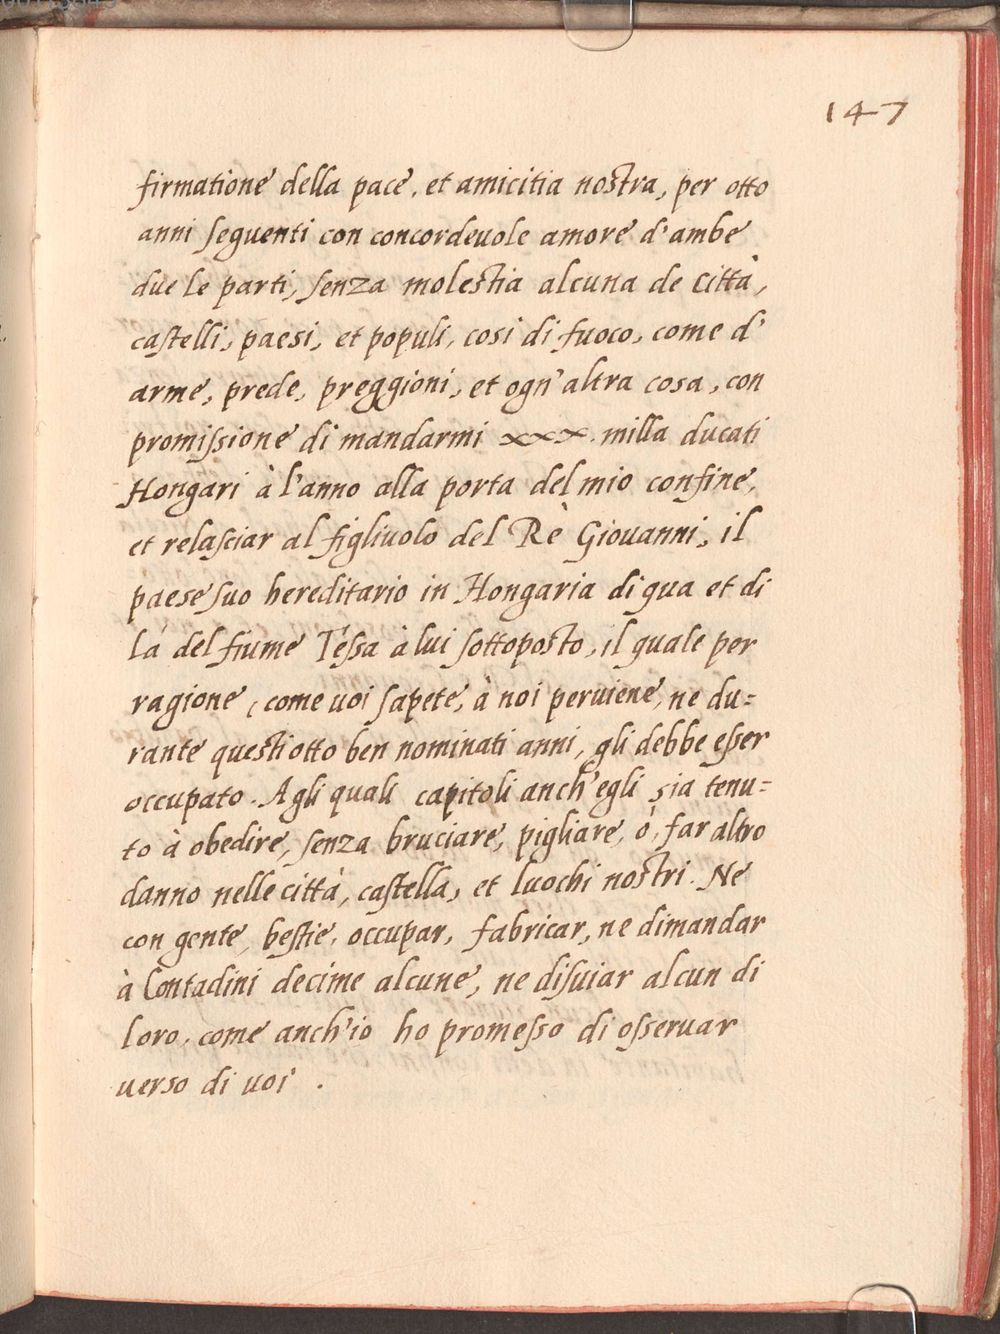 147
firmatione della pace, et amicitia nostra, per otto
anni seguenti con concordeuole amore d'ambe
due le parti, senza molestia alcuna de Città,
castelli, paesi, et populi, cosi di fuoco, come d'
arme, prede, preggioni, et ogn'altra cosa, con
promissione di mandarmi xxx. milla ducati
Hongari à l'anno alla porta del mio confine,
et relasciar al figliuolo del Rè Giouanni, il
paese suo hereditario in Hongaria di qua et di
là del fiume Tessa à lui sottoposto, il quale per
ragione, come uoi sapete, à noi peruiene, ne du=
rante questi otto ben nominati anni, gli debbe esser
occupato. Agli quali capitoli anch'egli sia tenu=
to à obedire, senza bruciare, pigliare, ò far altro
danno nelle città, castella, et luochi nostri. Ne
con gente, bestie, occupar, fabricar, ne dimandar
à Contadini decime alcune, ne disuiar alcun di
loro, come anch'io ho promesso di osseruar
uerso di uoi.